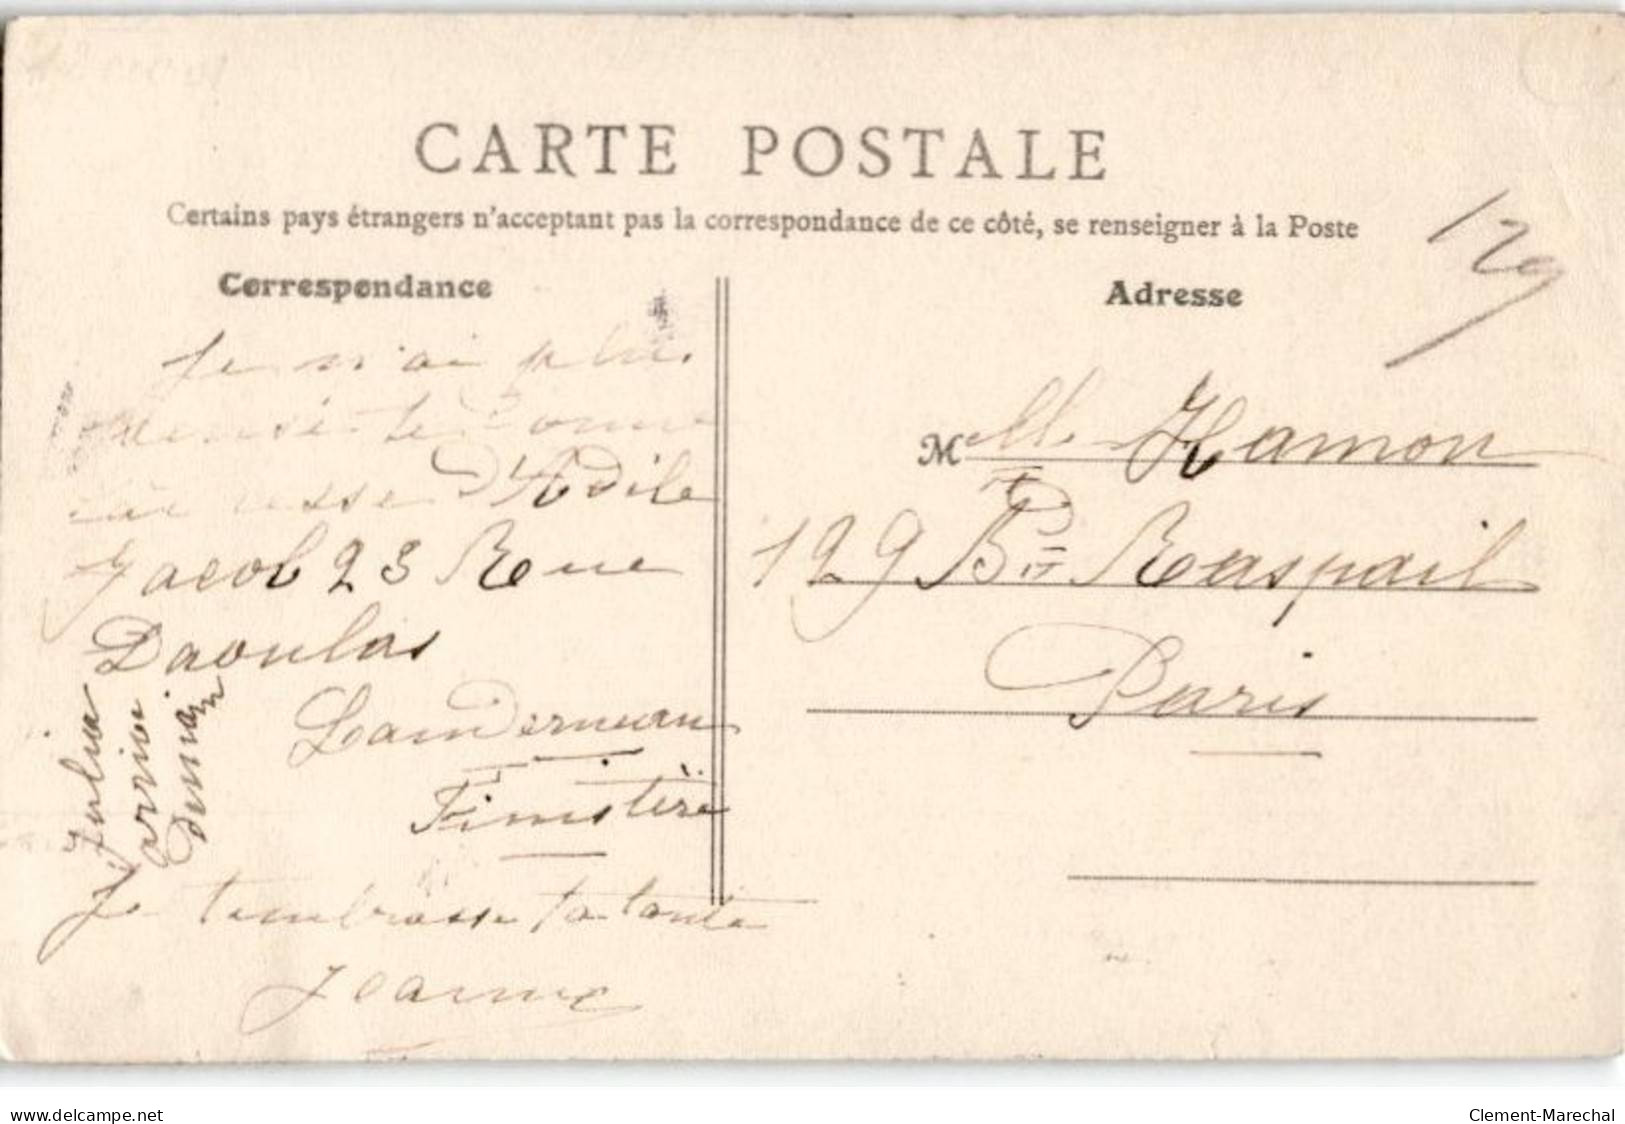 CARTE POSTALE
Certains pays étrangers n'acceptant pas la correspondance de ce côté, se renseigner à la Poste
129
Correspondance
Je n'ai plus
pensé te donne
d'Adile
Jacob 23 Rue
Daoulas
Landerneau
Finistère
Je t'embrasse ta tante
Jeanne
Julia
arrive
demain
Adresse
Melle Hamon
129 Bd Raspail
Paris
www.delcampe.net
Clement-Marechal